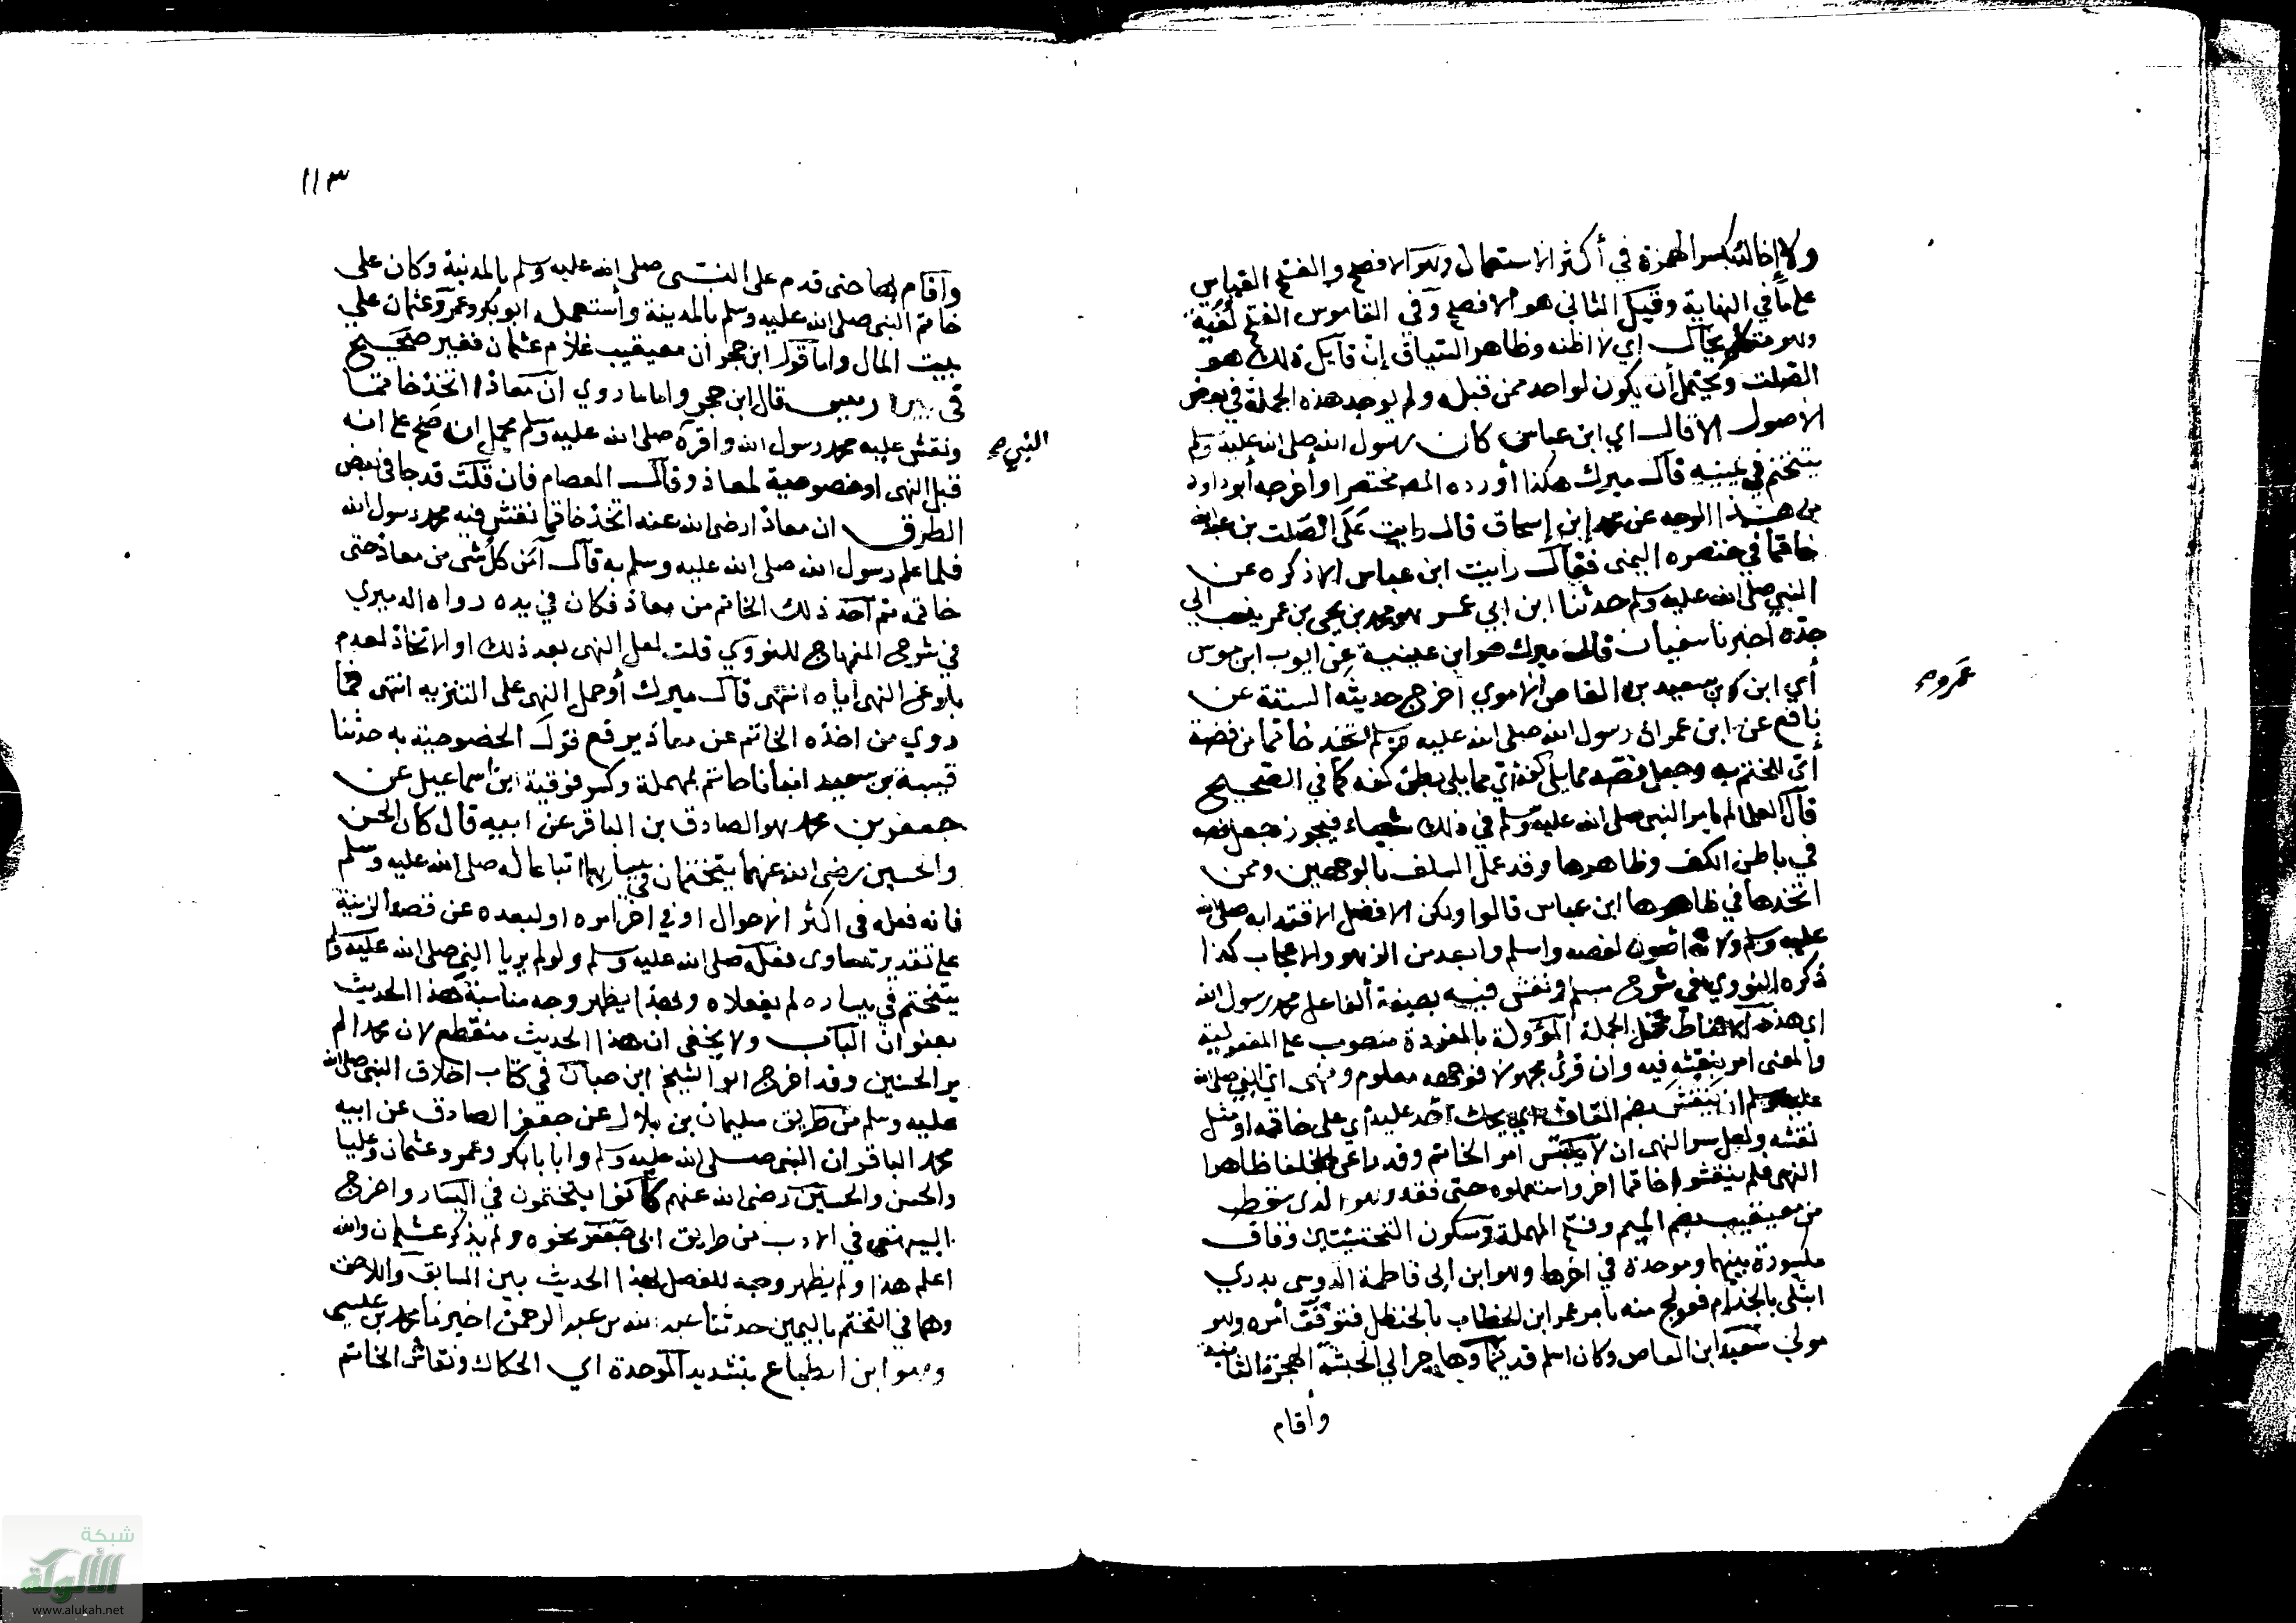 ولا إخاله بكسر الهمزة في أكثر الاستعمال وهو الافصح والفتح القياس
على ما في النهاية وقيل الثاني هو الافصح وفي القاموس الفتح لغية
وهو متكلم يخال اي لا اظنه وظاهر السياق إن قايل ذلك هو
الصلت ويحتمل أن يكون لواحد ممن قبله ولم يوجد هذه الجملة في بعض
الأصول الا قال اي ابن عباس كان رسول الله صلى الله عليه وسلم
يتختم في يمينه قال ميرك هكذا أورده المص مختصرا وأخرجه أبو داود
من هذا الوجه عن محمد إبن إسحاق قال رايت على الصلت بن عبد الله
خاتما في خنصره اليمنى فقال رأيت ابن عباس الا ذكره عن
النبي صلى الله عليه وسلم حدثنا ابن ابي عمر هو محمد بن يحيى بن عمر ينسب الي
جده اخبرنا سفيان قال ميرك هو ابن عيينة عن ايوب ابن موسى
أي ابن سعيد بن العاص الاموي اخرج حديثه الستة عن
عمرو صح
نافع عن ابن عمر ان رسول الله صلى الله عليه وسلم اتخذ خاتما من فضة
إي للختم به وجعل فصه مما يلي كفه اي مما يلي بطن كفه كما في الصحيح
قال العلما لم يامر النبي صلى الله عليه وسلم في ذلك شيء فيجوز جعل فصه
في باطن الكف وظاهرها وقد عمل السلف بالوجهين وممن
اتخذها في ظاهرها ابن عباس قالوا ولكن الافضل الاقتدا به صلى الله
عليه وسلم ولانه اصون لفصه واسلم وابعد من الزهو والاعجاب كذا
ذكره النووي في شرح مسلم ونقش فيه بصيغة الفاعل محمد رسول الله
اي هذه الالفاظ فمحل الجملة المؤولة بالمفردة منصوب على المفعولية
والمعنى امر بنقشه فيه وان قرئ مجهولا فوجهه معلوم ونهى اي النبي صلى الله
عليه وسلم ان ينقش بضم القاف احد عليه اي على خاتمه او مثل
نقشه ولعل سر النهى ان لا يلتبس امر الخاتم وقد راعى الخلفا ظاهرا
النهي فلم ينقشوا خاتما اخر واستعملوه حتى فقد وهو الذي سقط
من معيقيب بضم الميم وفتح المهملة وسكون التحتيتين وقاف
مكسورة بينهما وموحدة في اخرها وهو ابن ابي فاطمة الدوسى بدري
ابتلي بالجذام فعولج منه بامر عمر ابن الخطاب بالحنظل فتوقف أمره وهو
مولي سعيد ابن العاص وكان اسلم قديما وهاجر الي الحبشة الهجرة الثانية
وأقام
١١٣
وأقام بها حتى قدم على النبي صلى الله عليه وسلم بالمدينة وكان على
خاتم النبي صلى الله عليه وسلم بالمدينة وأستعمله ابو بكر وعمر وعثمان علي
بيت المال واما قول ابن حجر ان معيقيب غلام عثمان فغير صحيح
قال ابن حجر واما ما روي ان معاذا اتخذ خاتما
ونقش عليه محمد رسول الله واقره صلى الله عليه وسلم فيحمل ان صح على انه
النبي صح
قبل النهى او خصوصية لمعاذ وقال العصام فان قلت قد جا في بعض
الطرق ان معاذا رضى الله عنه اتخذ خاتما نقش فيه محمد رسول الله
فلما علم رسول الله صلى الله عليه وسلم به قال آمن كل شى من معاذ حتى
خاتمه ثم أخذ ذلك الخاتم من معاذ فكان في يده رواه الدميري
في شرح المنهاج للنووي قلت لعل النهى بعد ذلك او الاتخاذ لعدم
بلوغ النهى اياه انتهى قال ميرك أو حمل النهى على التنزيه انتهى فما
روي من اخذه الخاتم عن معاذ يرفع قول الخصوصية به حدثنا
قتيبة بن سعيد انبانا حاتم بمهملة وكسر فوقية ابن اسماعيل عن
جعفر بن محمد هو الصادق بن الباقر عن ابيه قال كان الحسن
والحسين رضى الله عنهما يتختمان في يسارهما اتباعا له صلى الله عليه وسلم
فانه فعله فى اكثر الاحوال او في اخر امره او لبعده عن قصد الزينة
على تقدير تساوى فعله صلى الله عليه وسلم ولو لم يريا النبي صلى الله عليه وسلم
يتختم في يساره لم يفعلاه وبهذا يظهر وجه مناسبة هذا الحديث
بعنوان الباب ولا يخفى ان هذا الحديث منقطع لان محمدا لم
ير الحسنين وقد اخرج ابو الشيخ ابن حبان في كتاب اخلاق النبي صلى الله
عليه وسلم من طريق سليمان بن بلال عن جعفر الصادق عن ابيه
محمد الباقر ان النبي صلى الله عليه وسلم وابا بكر وعمر وعثمان وعليا
والحسن والحسين رضى الله عنهم كانوا يتختمون في اليسار واخرج
البيهقي في الادب من طريق ابى جعفر نحوه ولم يذكر عثمان والله
اعلم هذا ولم يظهر وجه للفصل بهذا الحديث بين السابق واللاحق
وهما في التختم باليمين حدثنا عبد الله بن عبد الرحمن اخبرنا محمد بن عيسى
وهو ابن الطباع بتشديد الموحدة اي الحكاك ونقاش الخاتم
شبكة
الألوكة
www.alukah.net